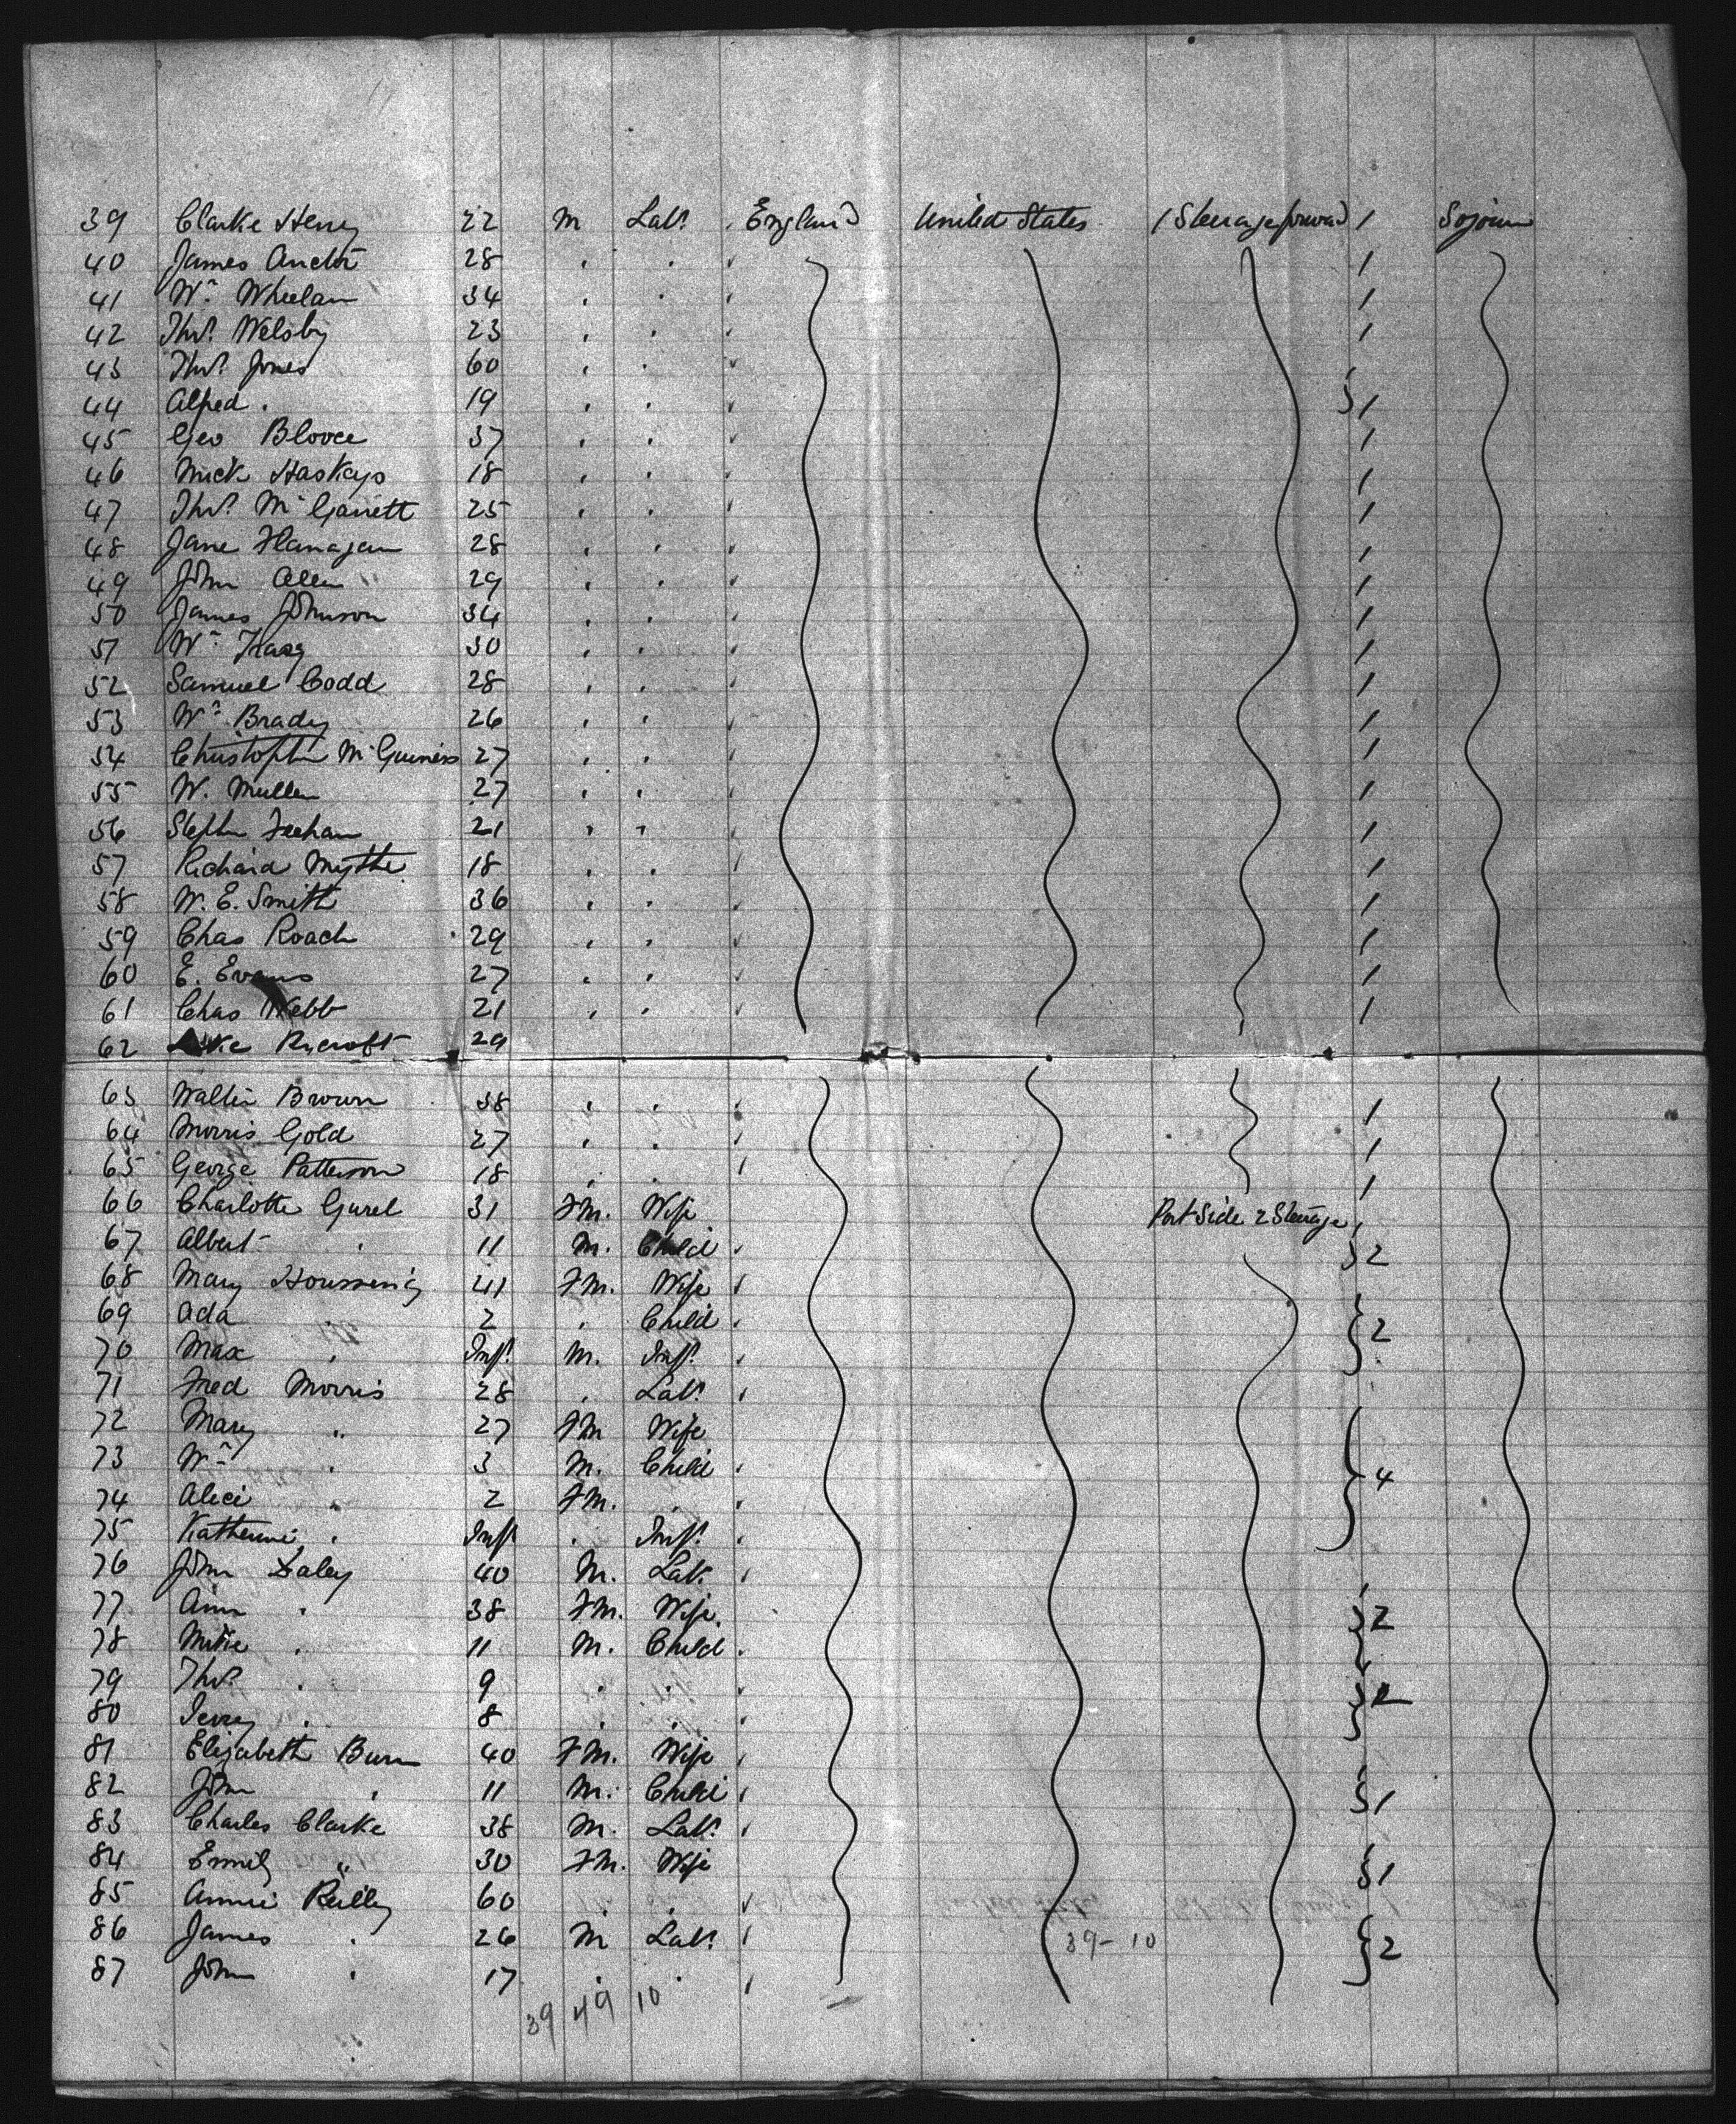 39 Clarke Henry 22 M Labr England United States (Steerage forward) / Sojourn
40 James 28 ' ' /
41 Wm Wheelan 34 ' ' /
42 Thos Welsby 23 ' ' /
43 Thos Jones 60 ' '
44 Alfred . 19 ' ' } /
45 Geo 37 ' ' /
46 Mick 18 ' ' /
47 Thos McGarrett 25 ' ' /
48 Jane Flanagan 28 ' ' /
49 John Allen 29 ' ' /
50 James Johnson 34 ' ' /
51 Wm 30 ' ' /
52 Samuel Codd 28 ' ' /
53 Wm Brady 26 ' ' /
54 Christopher McGuiness 27 ' ' /
55 W. Mullen 27 ' ' /
56 Stephn Feehan 21 ' ' /
57 Richard 18 ' ' /
58 W. E. Smith 36 ' ' /
59 Chas Roach 29 ' ' /
60 E. Evans 27 ' ' /
61 Chas Webb 21 ' ' /
62 Rycroft 29
63 Walter Brown 38 ' ' /
64 Morris Gold 27 ' ' /
65 George Patterson 18 . . /
66 Charlotte 31 Fm. Wife Port Side 2 Steerage /
67 Albert . 11 M. Child } 2
68 Mary 41 Fm. Wife
69 Ada . 2 ' Child } 2
70 Max . Inft M. Inft
71 Fred Morris 28 . Labr
72 Mary " 27 Fm Wife
73 Wm . 3 M. Child } 4
74 Alice . 2 Fm. .
75 Katherine . Inft . Inft
76 John Daley 40 M. Lab.
77 Ann . 38 Fm. Wife } 2
78 Mike . 11 M. Child
79 Thos . 9 . .
80 Jerry . 8 . .
81 Elizabeth Burn 40 Fm. Wife
82 John . 11 M. Child } 1
83 Charles Clarke 38 M. Labr
84 Emily " 30 Fm. Wife } 1
85 Annie Reilly 60 . .
86 James . 26 M Labr 39-10 } 2
87 John . 17 . .
39 49 10